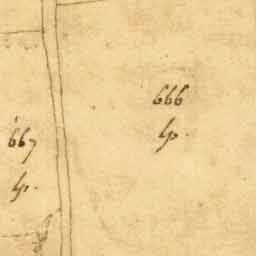 666
sp.
667
sp.